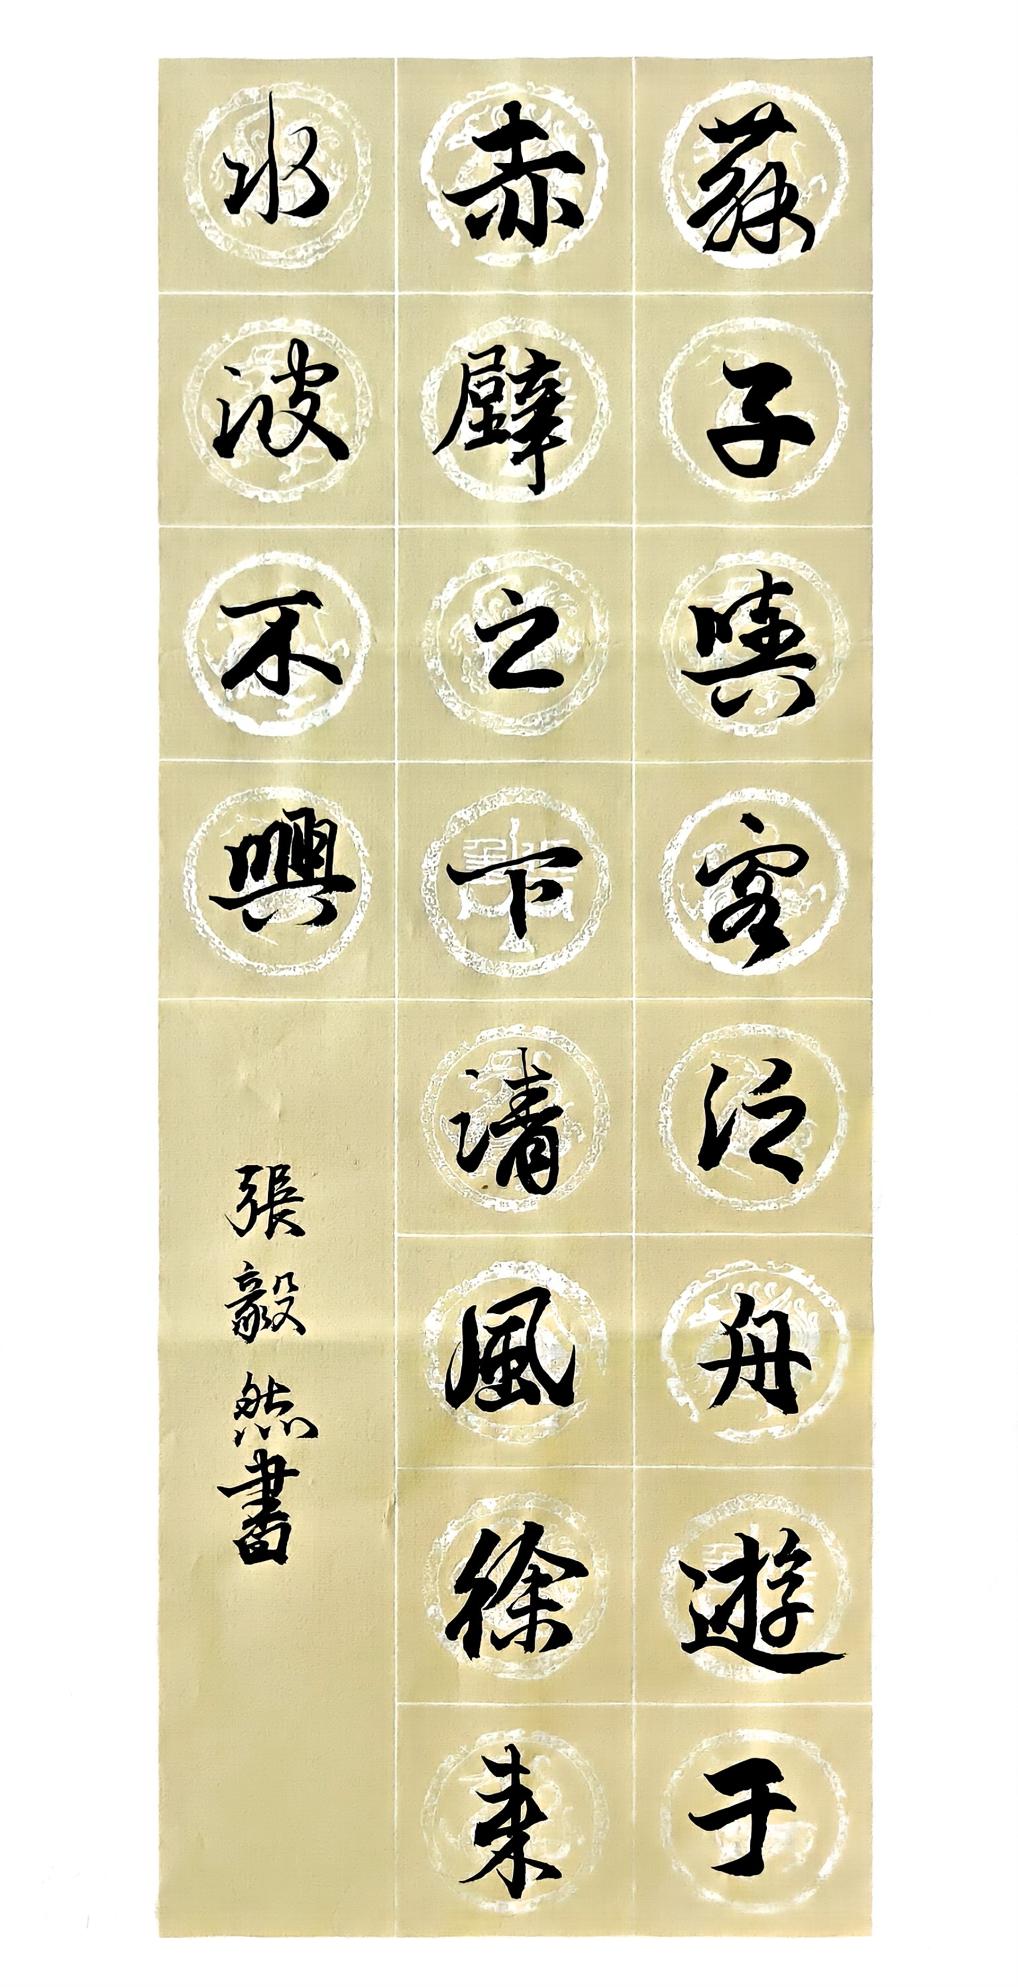 蘇子與客泛舟遊于
赤壁之下清風徐来
水波不興
張毅然書